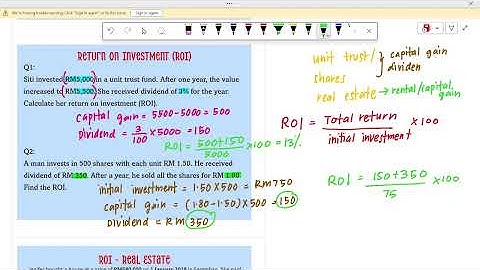 Return on Investment (ROI)
Q1:
Siti invested RM5,000 in a unit trust fund. After one year, the value
increased to RM5,500. She received dividend of 3% for the year.
Calculate her return on investment (ROI).
capital gain = 5500-5000 = 500
dividend = 3/100 × 5000 = 150
ROI = 500+150/5000 × 100 = 13%
Q2:
A man invests in 500 shares with each unit RM 1.50. He received
dividend of RM 350. After a year, he sold all the shares for RM 1.80.
Find the ROI.
initial investment = 1.50 × 500 = RM 750
capital gain = (1.80 - 1.50) × 500 = 150
Dividend = RM 350
ROI - Real Estate
unit trust/
shares
capital gain
dividen
real estate → rental/capital gain
ROI = Total return/initial investment × 100
ROI = 150+350/75 × 100